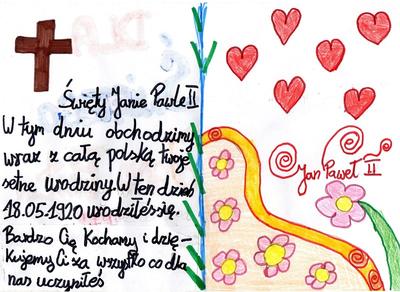 Święty Janie Pawle II
W tym dniu obchodzimy
wraz z całą polską twoje
setne urodziny. W ten dzień
18.05.1920 urodziłeś się.
Bardzo Cię Kochamy i dzię-
Kujemy Ci za wszystko co dla
nas uczyniłeś
Jan Paweł II